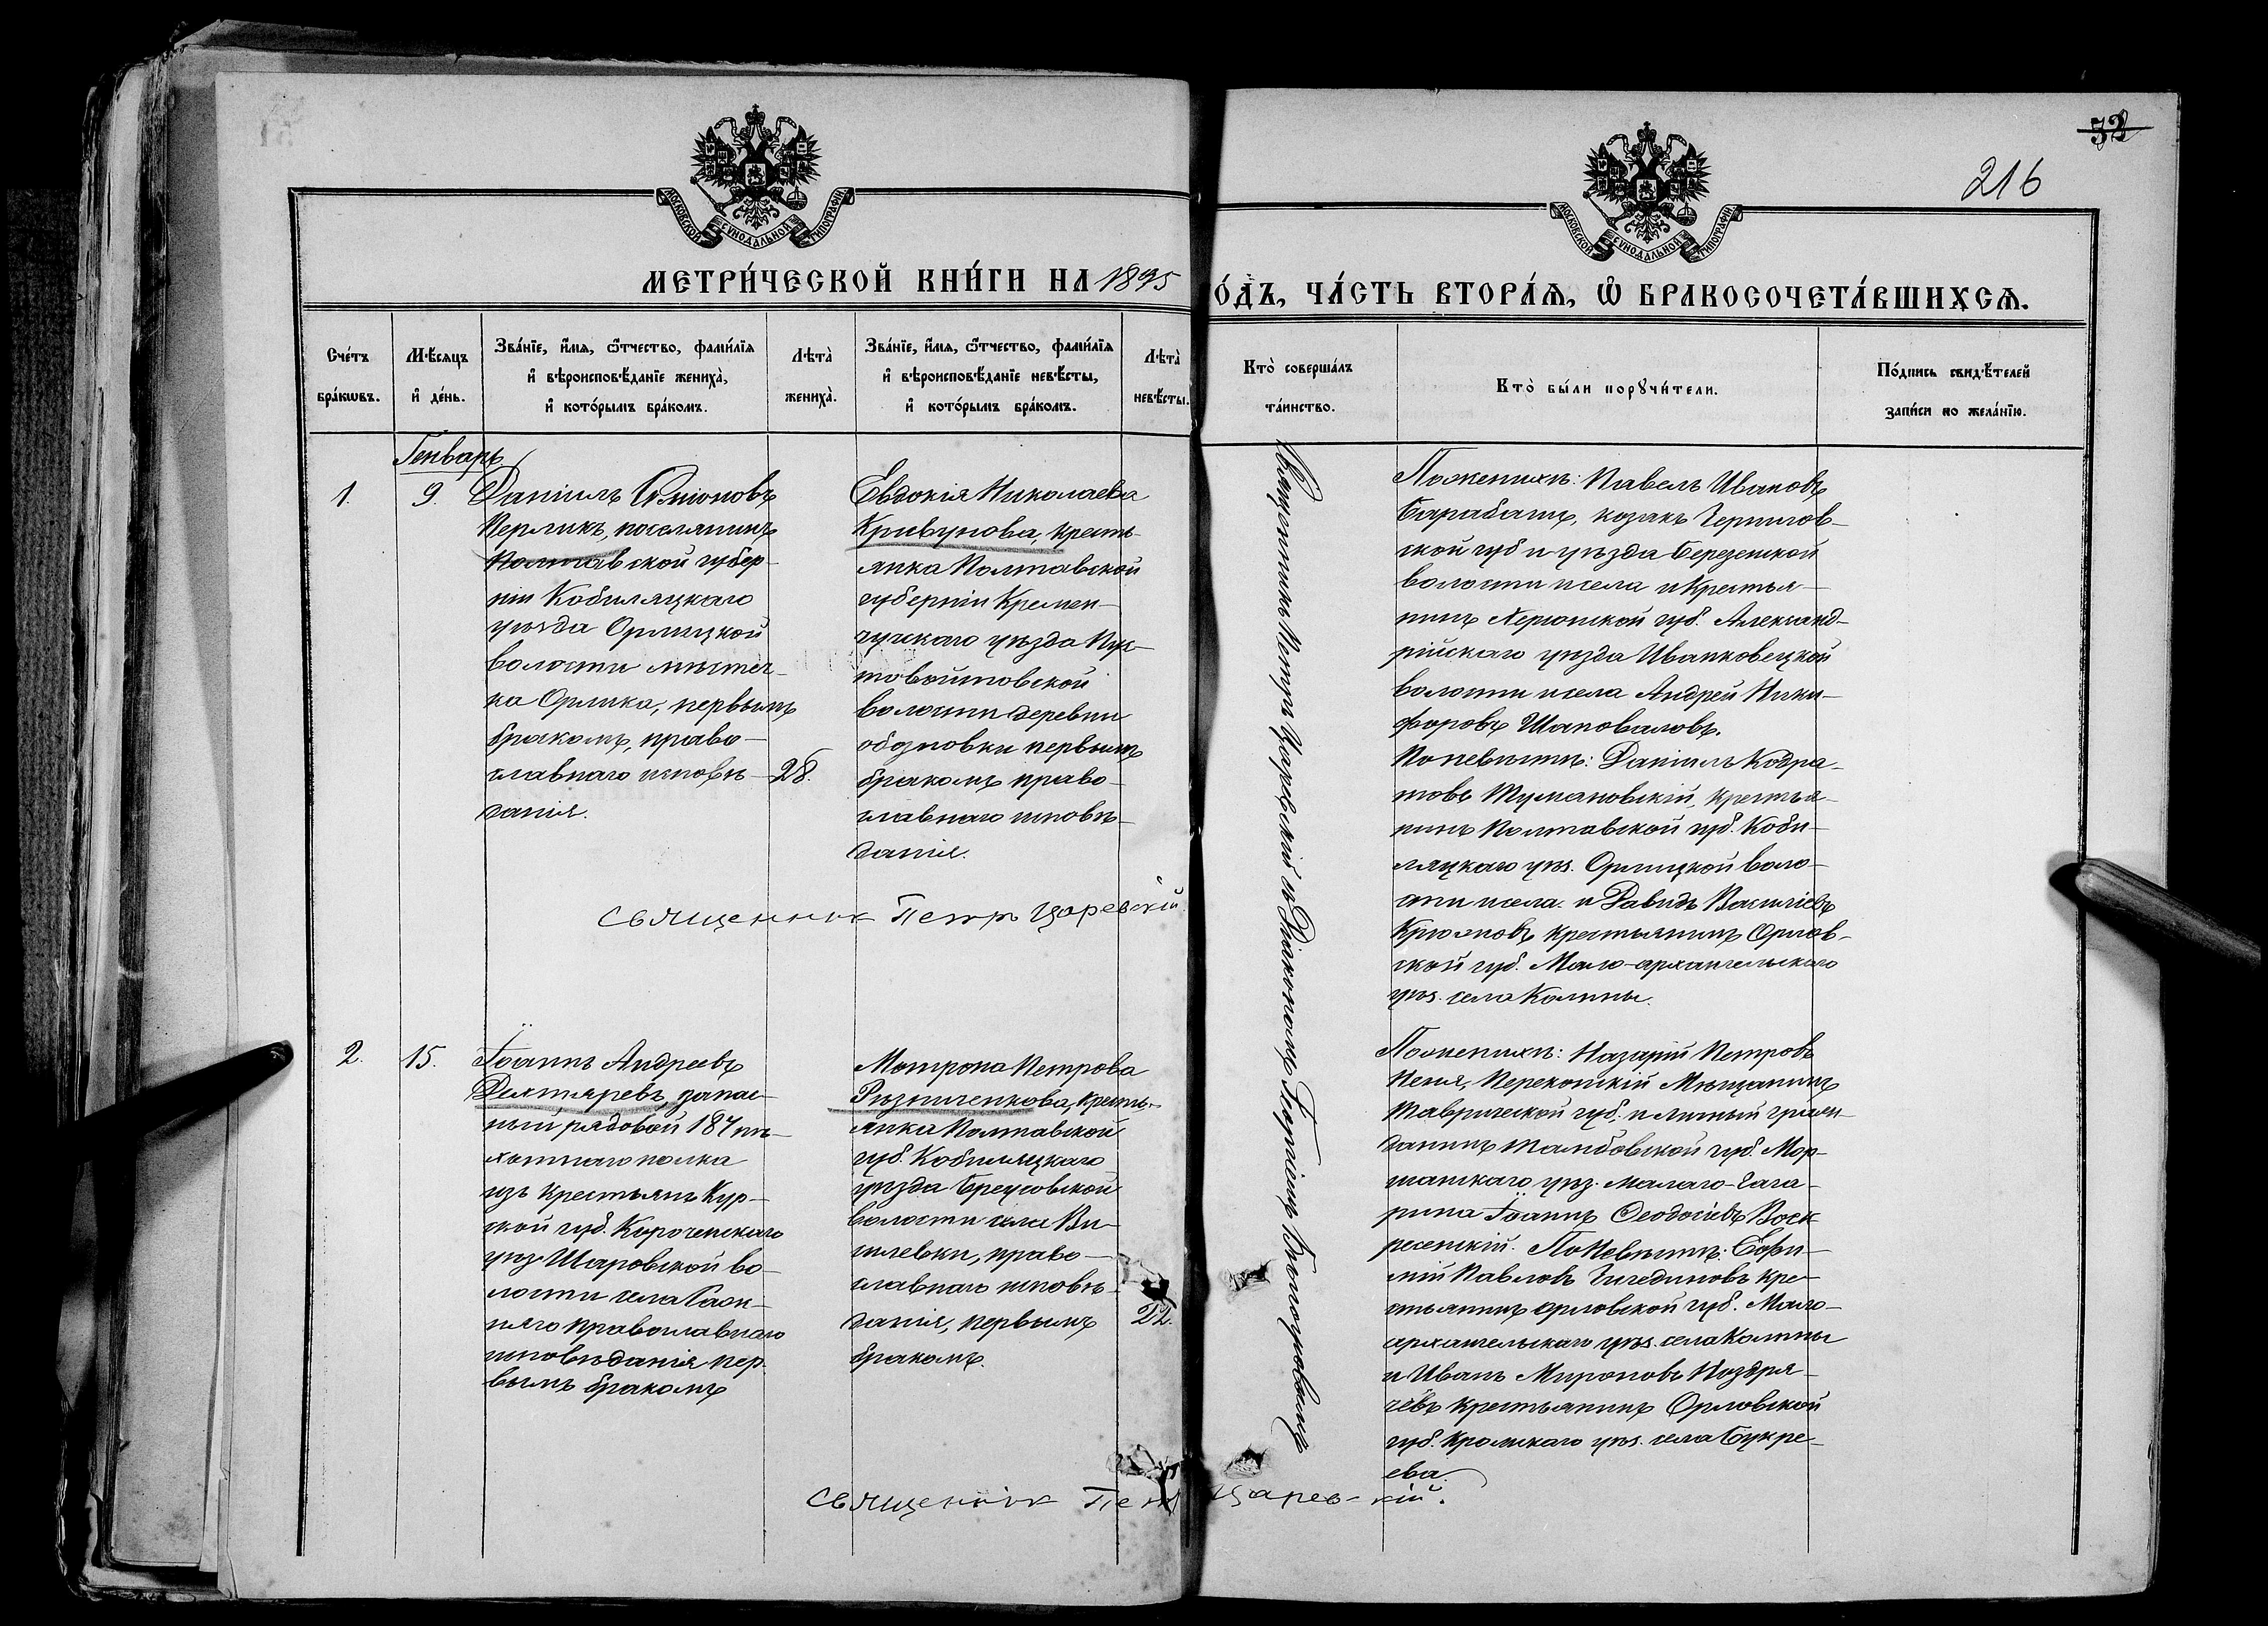 32
216
МОСКОВСКОЙ СѴНОДАЛЬНОЙ ТИПОГРАФІИ
МОСКОВСКОЙ СѴНОДАЛЬНОЙ ТИПОГРАФІИ
МЕТРИ́ЧЕСКОЙ КНИ́ГИ НА 1895
О́ДЪ, ЧА́СТЬ ВТОРА́Ѧ, Ѽ БРАКОСОЧЕТА́ВШИХСѦ.
Сче́тъ
бра́кѡвъ.
М҄ѣсяцъ
и҆ де́нь.
Зва́нїе, и҆́мѧ, ѻ҆́тчество, фами́лїѧ
и҆ вѣроисповѣ́данїе жениха̀,
и҆ кото́рымъ бра́комъ.
Лѣта̀
жениха̀.
Зва́нїе, и҆́мѧ, ѻ҆́тчество, фами́лїѧ
и҆ вѣроисповѣ́данїе невѣ́сты,
и҆ кото́рымъ бра́комъ.
Лѣта̀
невѣ́сты.
Кто̀ соверша́лъ
та́инство.
Кто̀ бы́ли порꙋчи́тели.
По́дпись свидѣ́телей
за́писи по жела́нїю.
Генварь
1.
9.
Даніилъ
Перликъ, поселянинъ
Полтавской губер-
ніи Кобиляцкаго
уѣзда Орлицкой
волости мѣстеч-
ка Орлика, первымъ
бракомъ, право-
славнаго исповѣ-
данія.
28.
Евдокія Николаева
Кривунова, кресть-
янка Полтавской
губерніи Кремен-
чугскаго уѣзда Пус-
товойтовской
волости деревни
обозновки первымъ
бракомъ право-
славнаго исповѣ-
данія.
Священник Петр Царевскій.
Священникъ Петръ Царевскій и Діакономъ
Поженихѣ: Павелъ Ивановъ
Барабашъ, козакъ Чернигов-
ской губ и уѣзда Березенской
волости и села и Крестья-
нинъ Херсонской губ. Александ-
рійскаго уѣзда Иванковецкой
волости и села Андрей Ники-
форовъ Шаповаловъ.
По невѣстѣ: Даніилъ Кодра-
товъ Тумановскій, крестья-
нинъ Полтавской губ. Коби-
ляцкаго уѣз. Орлицкой воло-
сти и села. и Давидъ Василіевъ
крестьянинъ Орлов-
ской губ. Мало-архангельскаго
уѣз. села Колпны.
2.
15.
Іоаннъ Андреевъ
Дехтяревъ, запас-
ный рядовой 187 пѣ-
хотнаго полка
изъ крестьянъ Кур-
ской губ. Короченскаго
уѣз. Шаровской во-
лости села
православнаго
исповѣданія пер-
вымъ бракомъ
Мотрона Петрова
Рѣзниченкова, кресть-
янка Полтавской
губ. Кобиляцкаго
уѣзда Бреусовской
волости села Ва-
силевки, право-
славнаго исповѣ-
данія, первымъ
бракомъ.
22.
Поженихѣ: Назарій Петровъ
Пеня, Перекопскій Мѣщанинъ
Таврической губ. и личный граж-
данинъ Тамбовской губ. Мор-
шанскаго уѣз. малаго-Гага-
рина Іоаннъ Ѳеодосіевъ Воск
ресенскій. По Невѣстѣ: Ефи-
мій Павловъ Чичединовъ кре-
стьянинъ орловской губ. Мало-
архангельскаго уѣз. села Колпны
и Иванъ Мироновъ Ноздря-
чевъ крестьянинъ Орловской
губ. Кромскаго уѣз. села Букре-
ева.
Священник Пет Царевскій.